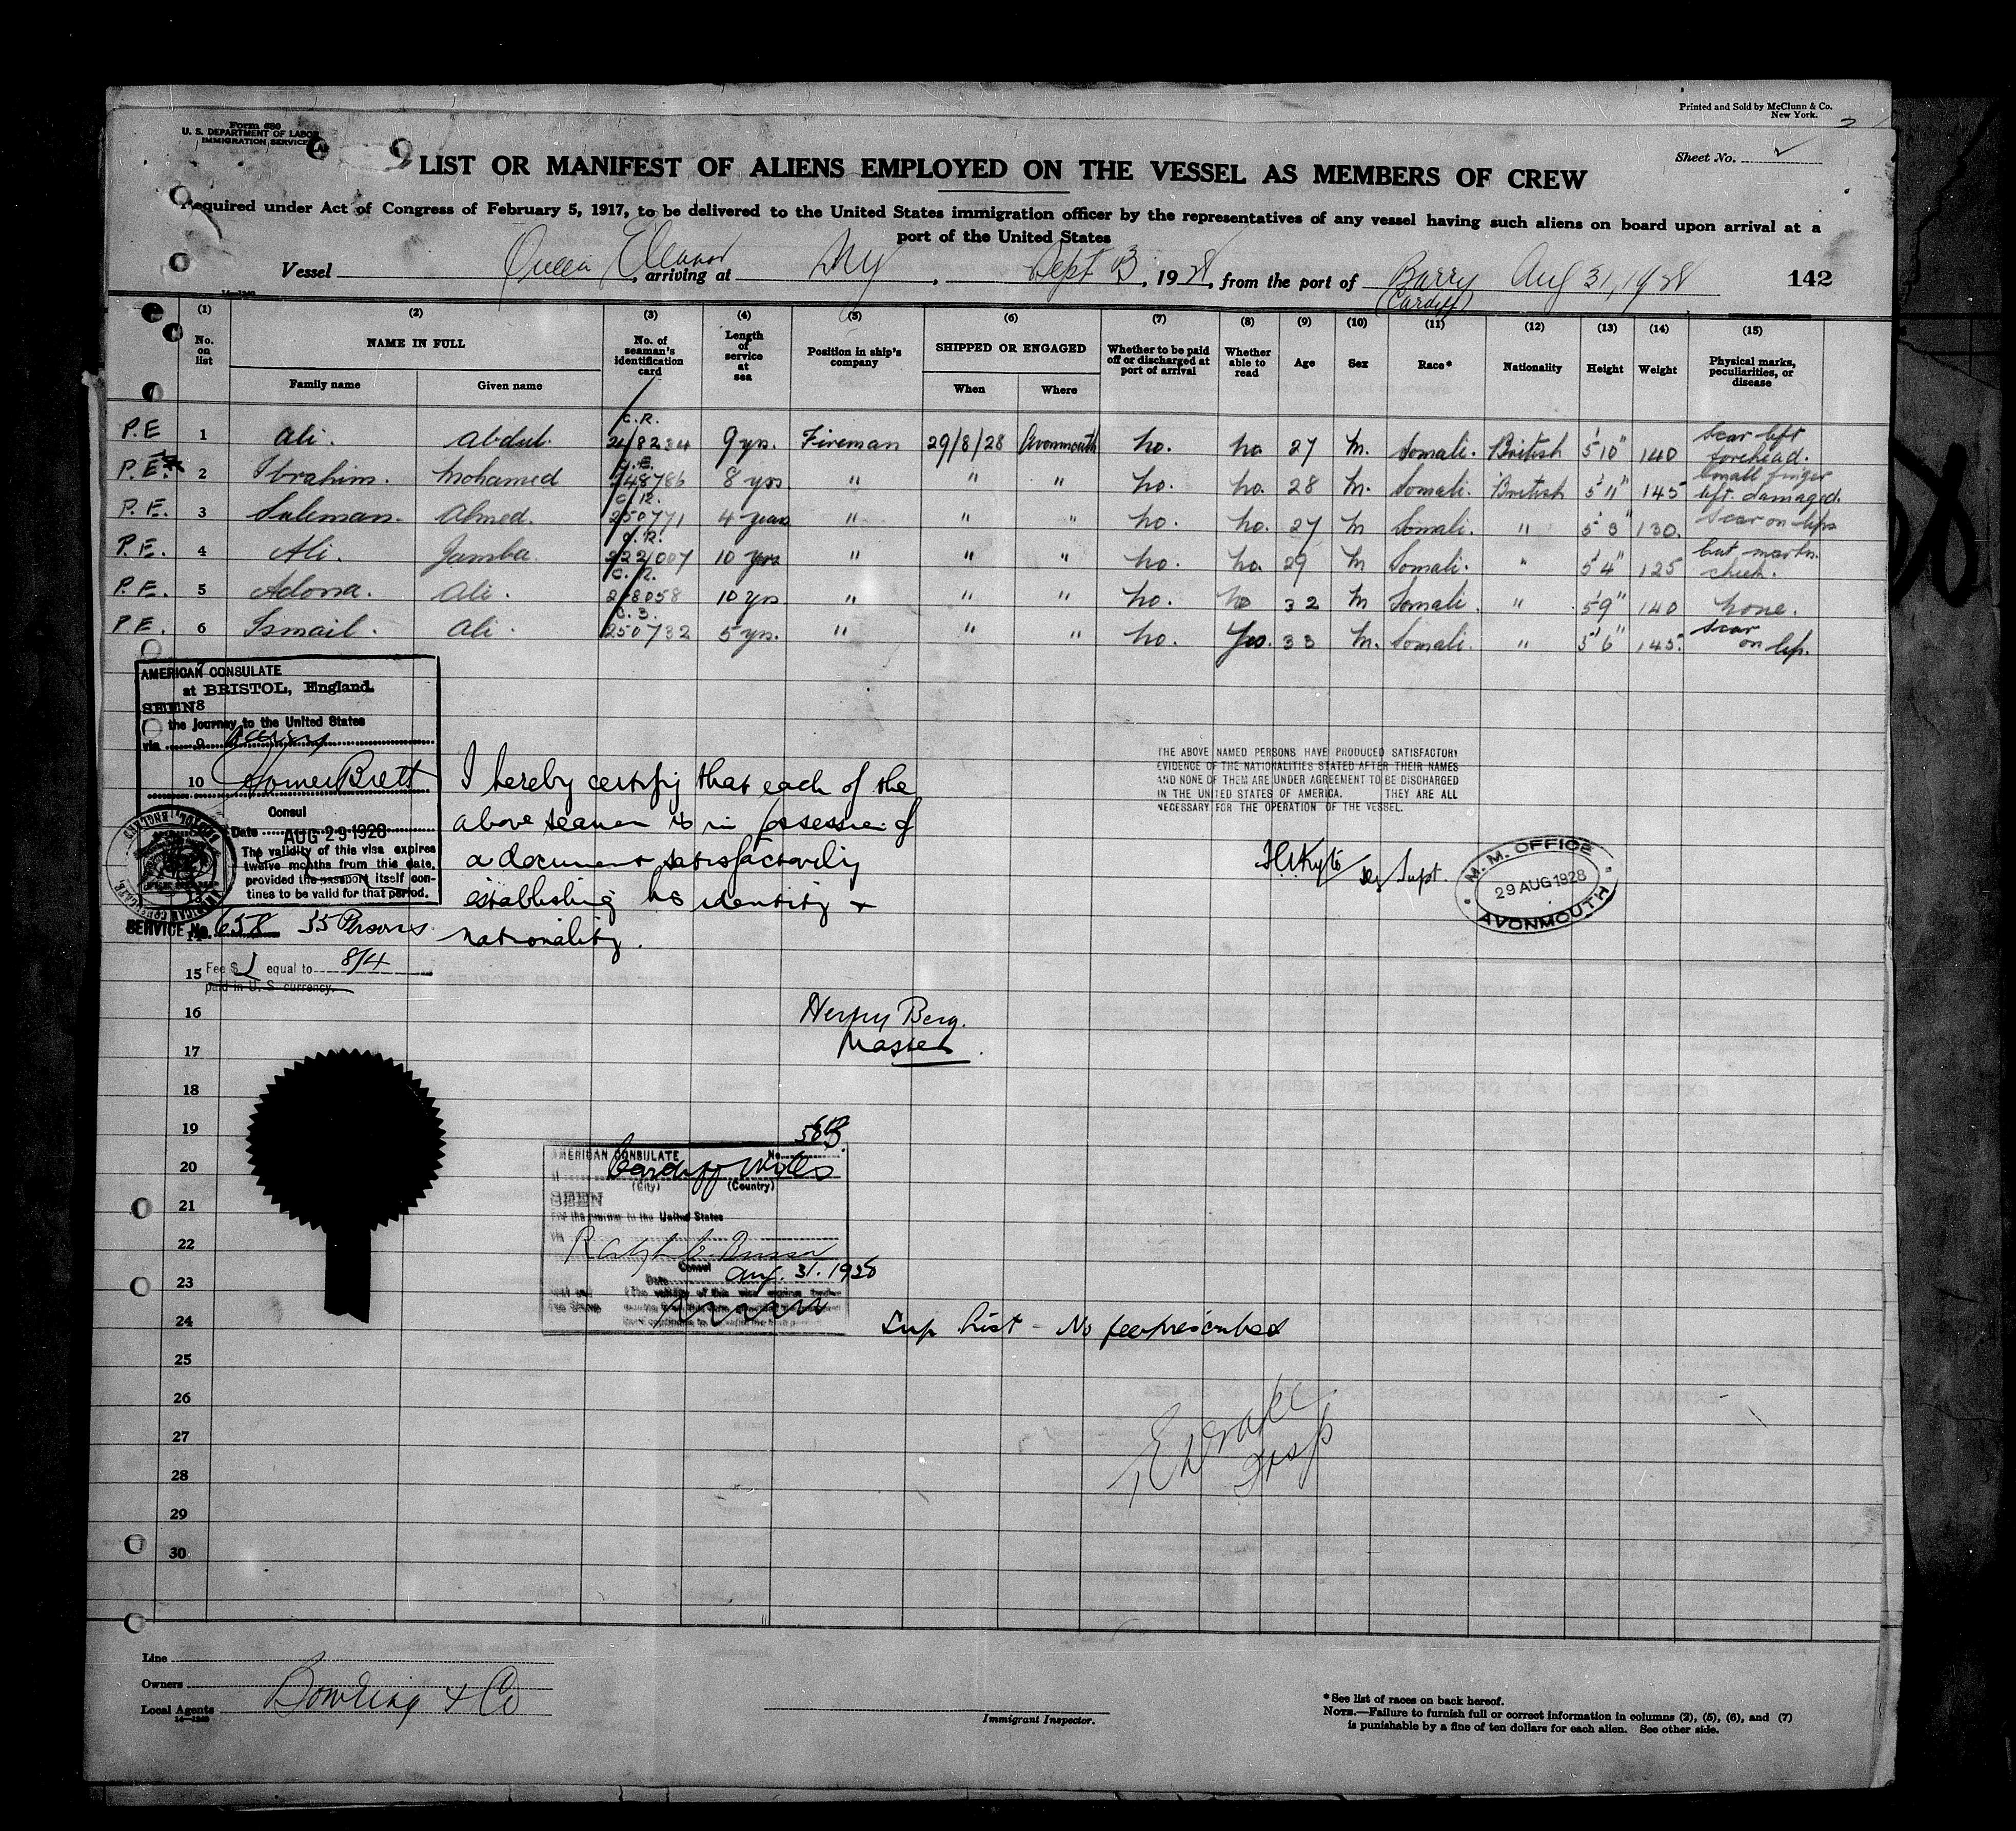 Printed and Sold by McClunn & Co.
New York.
Form 680
U. S. DEPARTMENT OF LABOR
IMMIGRATION SERVICE
Sheet No. 2
LIST OR MANIFEST OF ALIENS EMPLOYED ON THE VESSEL AS MEMBERS OF CREW
Required under Act of Congress of February 5, 1917, to be delivered to the United States immigration officer by the representatives of any vessel having such aliens on board upon arrival at a
port of the United States
Vessel Queen Eleanor, arriving at NY, Sept 13, 1928, from the port of Barry Aug 31, 1928 142
(Cardiff)
(1) (2) (3) (4) (5) (6) (7) (8) (9) (10) (11) (12) (13) (14) (15)
No. on list NAME IN FULL No. of seaman's identification card Length of service at sea Position in ship's company SHIPPED OR ENGAGED Whether to be paid off or discharged at port of arrival Whether able to read Age Sex Race* Nationality Height Weight Physical marks, peculiarities, or disease
Family name Given name When Where
P.E 1 Ali. Abdul. C.R. 218234 9 yrs. Fireman 29/8/28 Avonmouth no. no 27 M. Somali. British 5'10" 140 Scar left forehead.
P.E. 2 Ibrahim. Mohamed 248786 8 yrs " " " no. no. 28 M. Somali. British 5'11" 145 Small finger left damaged.
P.E. 3 Suleman. Ahmed. C.R. 250771 4 years " " " no. no. 27 M Somali. " 5'3" 130. Scar on lips
P.E. 4 Ali. Jamba. C.R. 221007 10 yrs " " " no. no. 29 M Somali. " 5'4" 125 Cut mark cheek.
P.E. 5 Adona. Ali. C.R. 218058 10 yrs " " " no. no 32 M Somali. " 5'9" 140 none.
P.E. 6 Ismail. Ali. 250732 5 yrs. " " " no. Yes. 33 M. Somali. " 5'6" 145. Scar on lip.
AMERICAN CONSULATE
at BRISTOL, England.
SEEN 8
the journey to the United States
via 9
10 Homer Brett
Consul
Date AUG 29 1928
The validity of this visa expires
twelve months from this date,
provided the passport itself con-
tines to be valid for that period.
SERVICE No. 658 55 Persons
15 Fee $1 equal to 8/4
paid in U. S. currency.
I hereby certify that each of the
above seamen is in possession of
a document satisfactorily
establishing his identity +
nationality.
Henry Berg.
Master
THE ABOVE NAMED PERSONS HAVE PRODUCED SATISFACTORY
EVIDENCE OF THE NATIONALITIES STATED AFTER THEIR NAMES
AND NONE OF THEM ARE UNDER AGREEMENT TO BE DISCHARGED
IN THE UNITED STATES OF AMERICA. THEY ARE ALL
NECESSARY FOR THE OPERATION OF THE VESSEL.
Supt.
M. M. OFFICE
29 AUG 1928
AVONMOUTH
16
17
18
19
20
21
22
23
24
25
26
27
28
29
30
AMERICAN CONSULATE No.
Cardiff Wales
(City) (Country)
SEEN
For the journey to the United States
Consul
Date Aug. 31. 1928
Sup List - No fee prescribed
Drake
Insp
Line
Owners
Local Agents Bowring & Co
14—1240
Immigrant Inspector.
*See list of races on back hereof.
NOTE.—Failure to furnish full or correct information in columns (2), (5), (6), and (7)
is punishable by a fine of ten dollars for each alien. See other side.